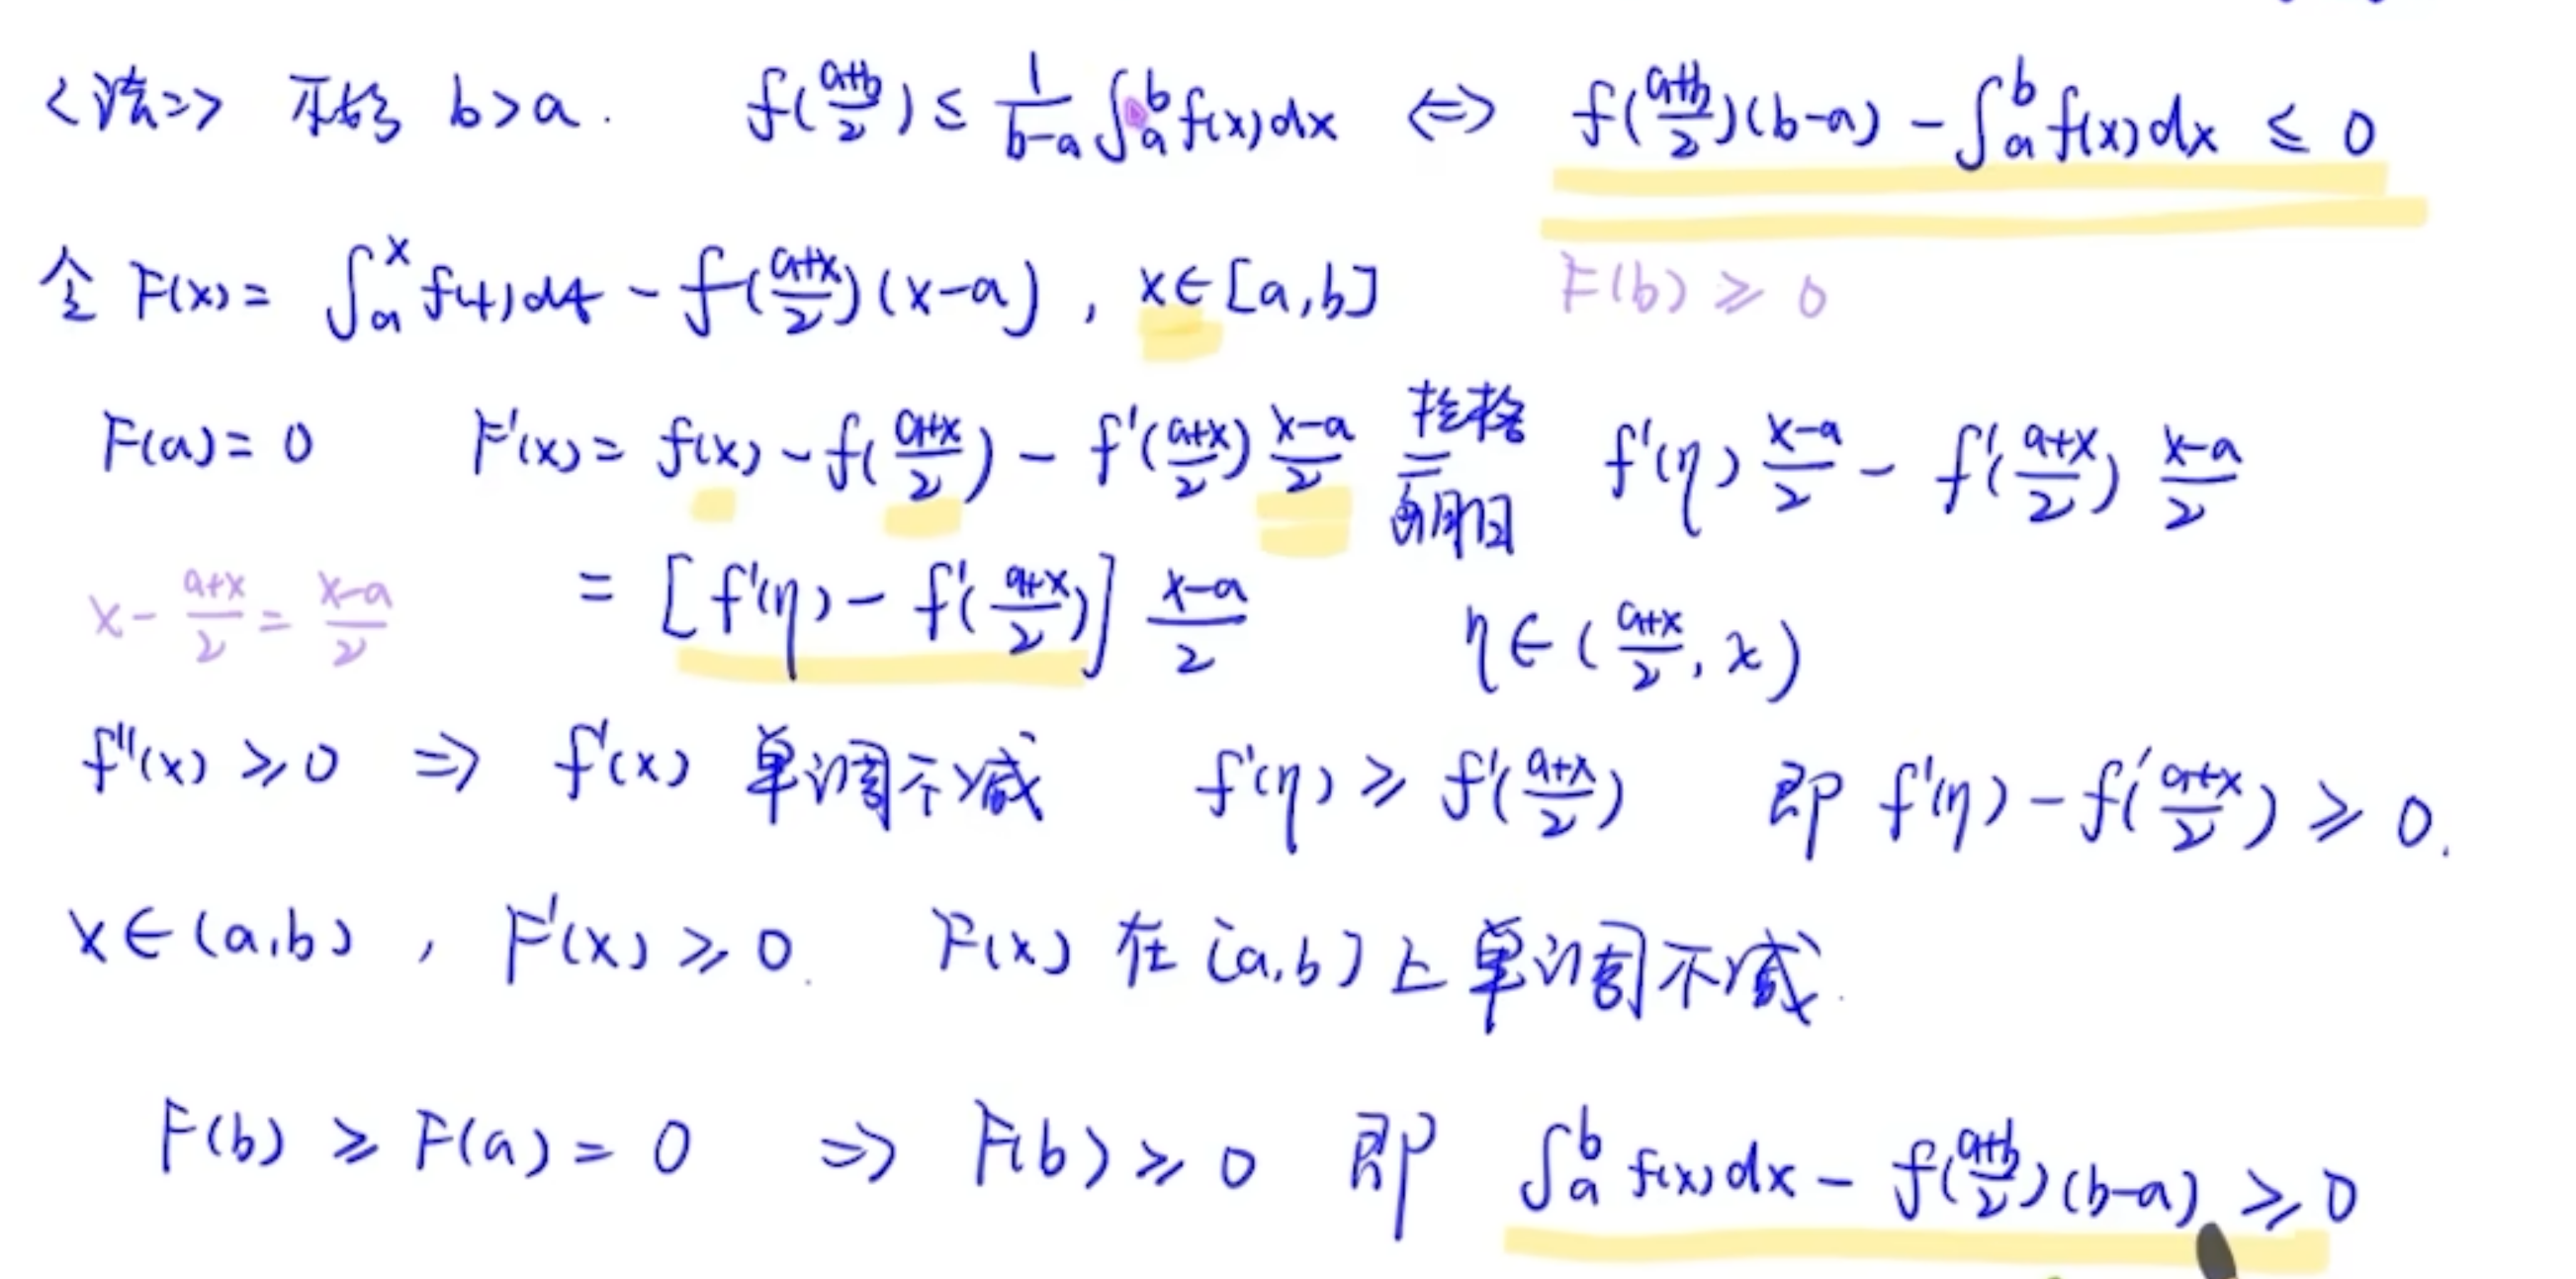 <法二> 不妨 b>a. f(a+b/2) ≤ 1/(b-a) ∫_a^b f(x)dx ⇔ f(a+b/2)(b-a) - ∫_a^b f(x)dx ≤ 0
令 F(x) = ∫_a^x f(t)dt - f(a+x/2)(x-a), x∈[a,b] F(b) ≥ 0
F(a) = 0 F'(x) = f(x) - f(a+x/2) - f'(a+x/2) x-a/2 拉格朗日 = f'(η) x-a/2 - f'(a+x/2) x-a/2
x - a+x/2 = x-a/2 = [f'(η) - f'(a+x/2)] x-a/2 η∈(a+x/2, x)
f''(x) ≥ 0 ⇒ f'(x) 单调不减 f'(η) ≥ f'(a+x/2) 即 f'(η) - f'(a+x/2) ≥ 0.
x∈(a,b), F'(x) ≥ 0. F(x) 在 [a,b] 上单调不减.
F(b) ≥ F(a) = 0 ⇒ F(b) ≥ 0 即 ∫_a^b f(x)dx - f(a+b/2)(b-a) ≥ 0